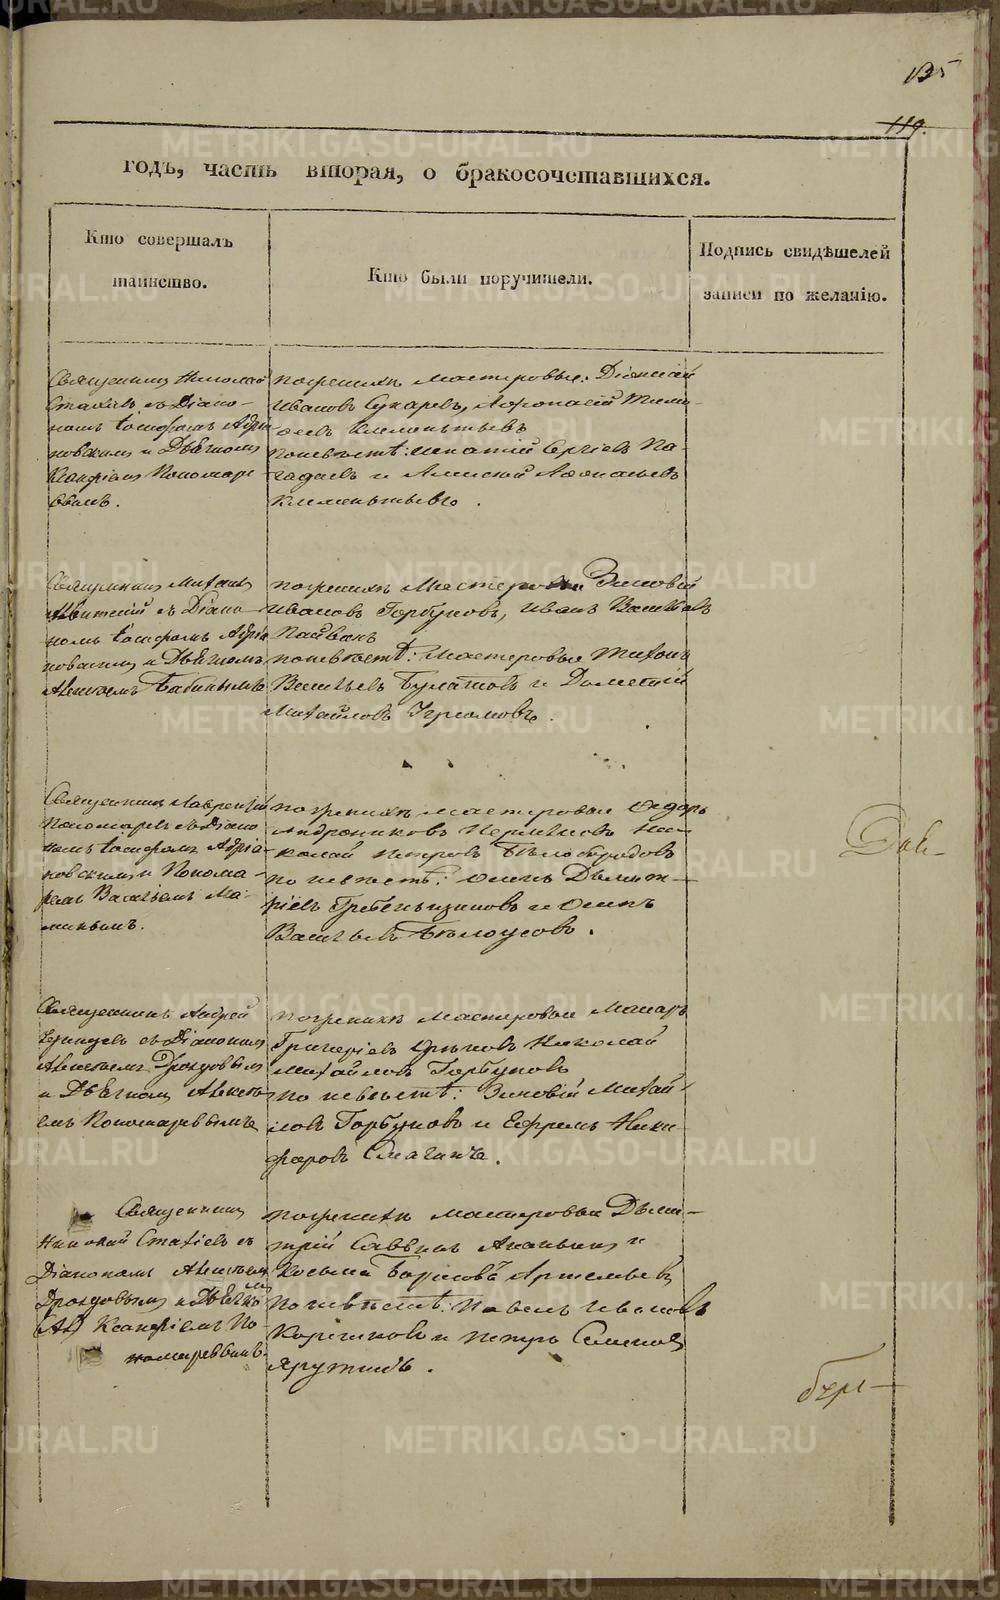 135
119.
годъ, часть вторая, о бракосочетавшихся.
Кто совершалъ
таинство.
Кто были поручители.
Подпись свидѣтелей
записи по желанію.
Священникъ Николай
Стахіевъ съ Діако-
номъ Іосифомъ Адріа
новскимъ и Дьячкомъ
Ксанфіемъ Пономаре
вымъ.
по женихѣ мастеровые: Діонисій
Ивановъ Сухаревъ, Афонасей Тимо-
феевъ Клементьевъ
по невѣстѣ: Игнатій Сергіевъ
и Алексѣй Афонасьевъ
Клементьевъ.
Священникъ Михаилъ
съ Діако-
номъ Іосифомъ Адріа
новскимъ и Дьячкомъ
Алексѣемъ Бабинымъ
по женихѣ Мастеровые Зиновій
Ивановъ Горбуновъ, Иванъ Васильевъ
по невѣстѣ: Мастеровые Тихонъ
Васильевъ Булатовъ и Дометій
Михайловъ
Священникъ Лаврентій
Пономаревъ съ Діако
номъ Іосифомъ Адріа-
новскимъ и Понома-
ремъ Васильемъ Ма-
минымъ.
по женихѣ мастеровые Ѳедоръ
Андрониковъ Пермяковъ Ни-
колай Петровъ Бѣлобородовъ
по невѣстѣ: Дьмит-
ріевъ Гребеньщиковъ и Осипъ
Васильевъ Бѣлоусовъ.
Священникъ Андрей
съ Діакономъ
Алексѣемъ Дроздовымъ
и Дьячкомъ Алексѣ
емъ Пономаревымъ
по женихѣ Мастеровые Макаръ
Григоріевъ Николай
Михайловъ Горбуновъ
по невѣстѣ: Зиновій Михай
ловъ Горбуновъ и Ефремъ Ники
форовъ Смагинъ.
Священникъ
Николай Стахіевъ съ
Діакономъ Алексѣемъ
Дроздовымъ и Дьячко
мъ
Ксанфіемъ По
номаревымъ
по женихѣ мастеровые Дьми-
трій Саввинъ Ананьинъ и
Косьма Борисовъ Артемьевъ
по невѣстѣ: Павелъ Ивановъ
и Петръ Семеновъ
Ярутинъ.
METRIKI.GASO-URAL.RU